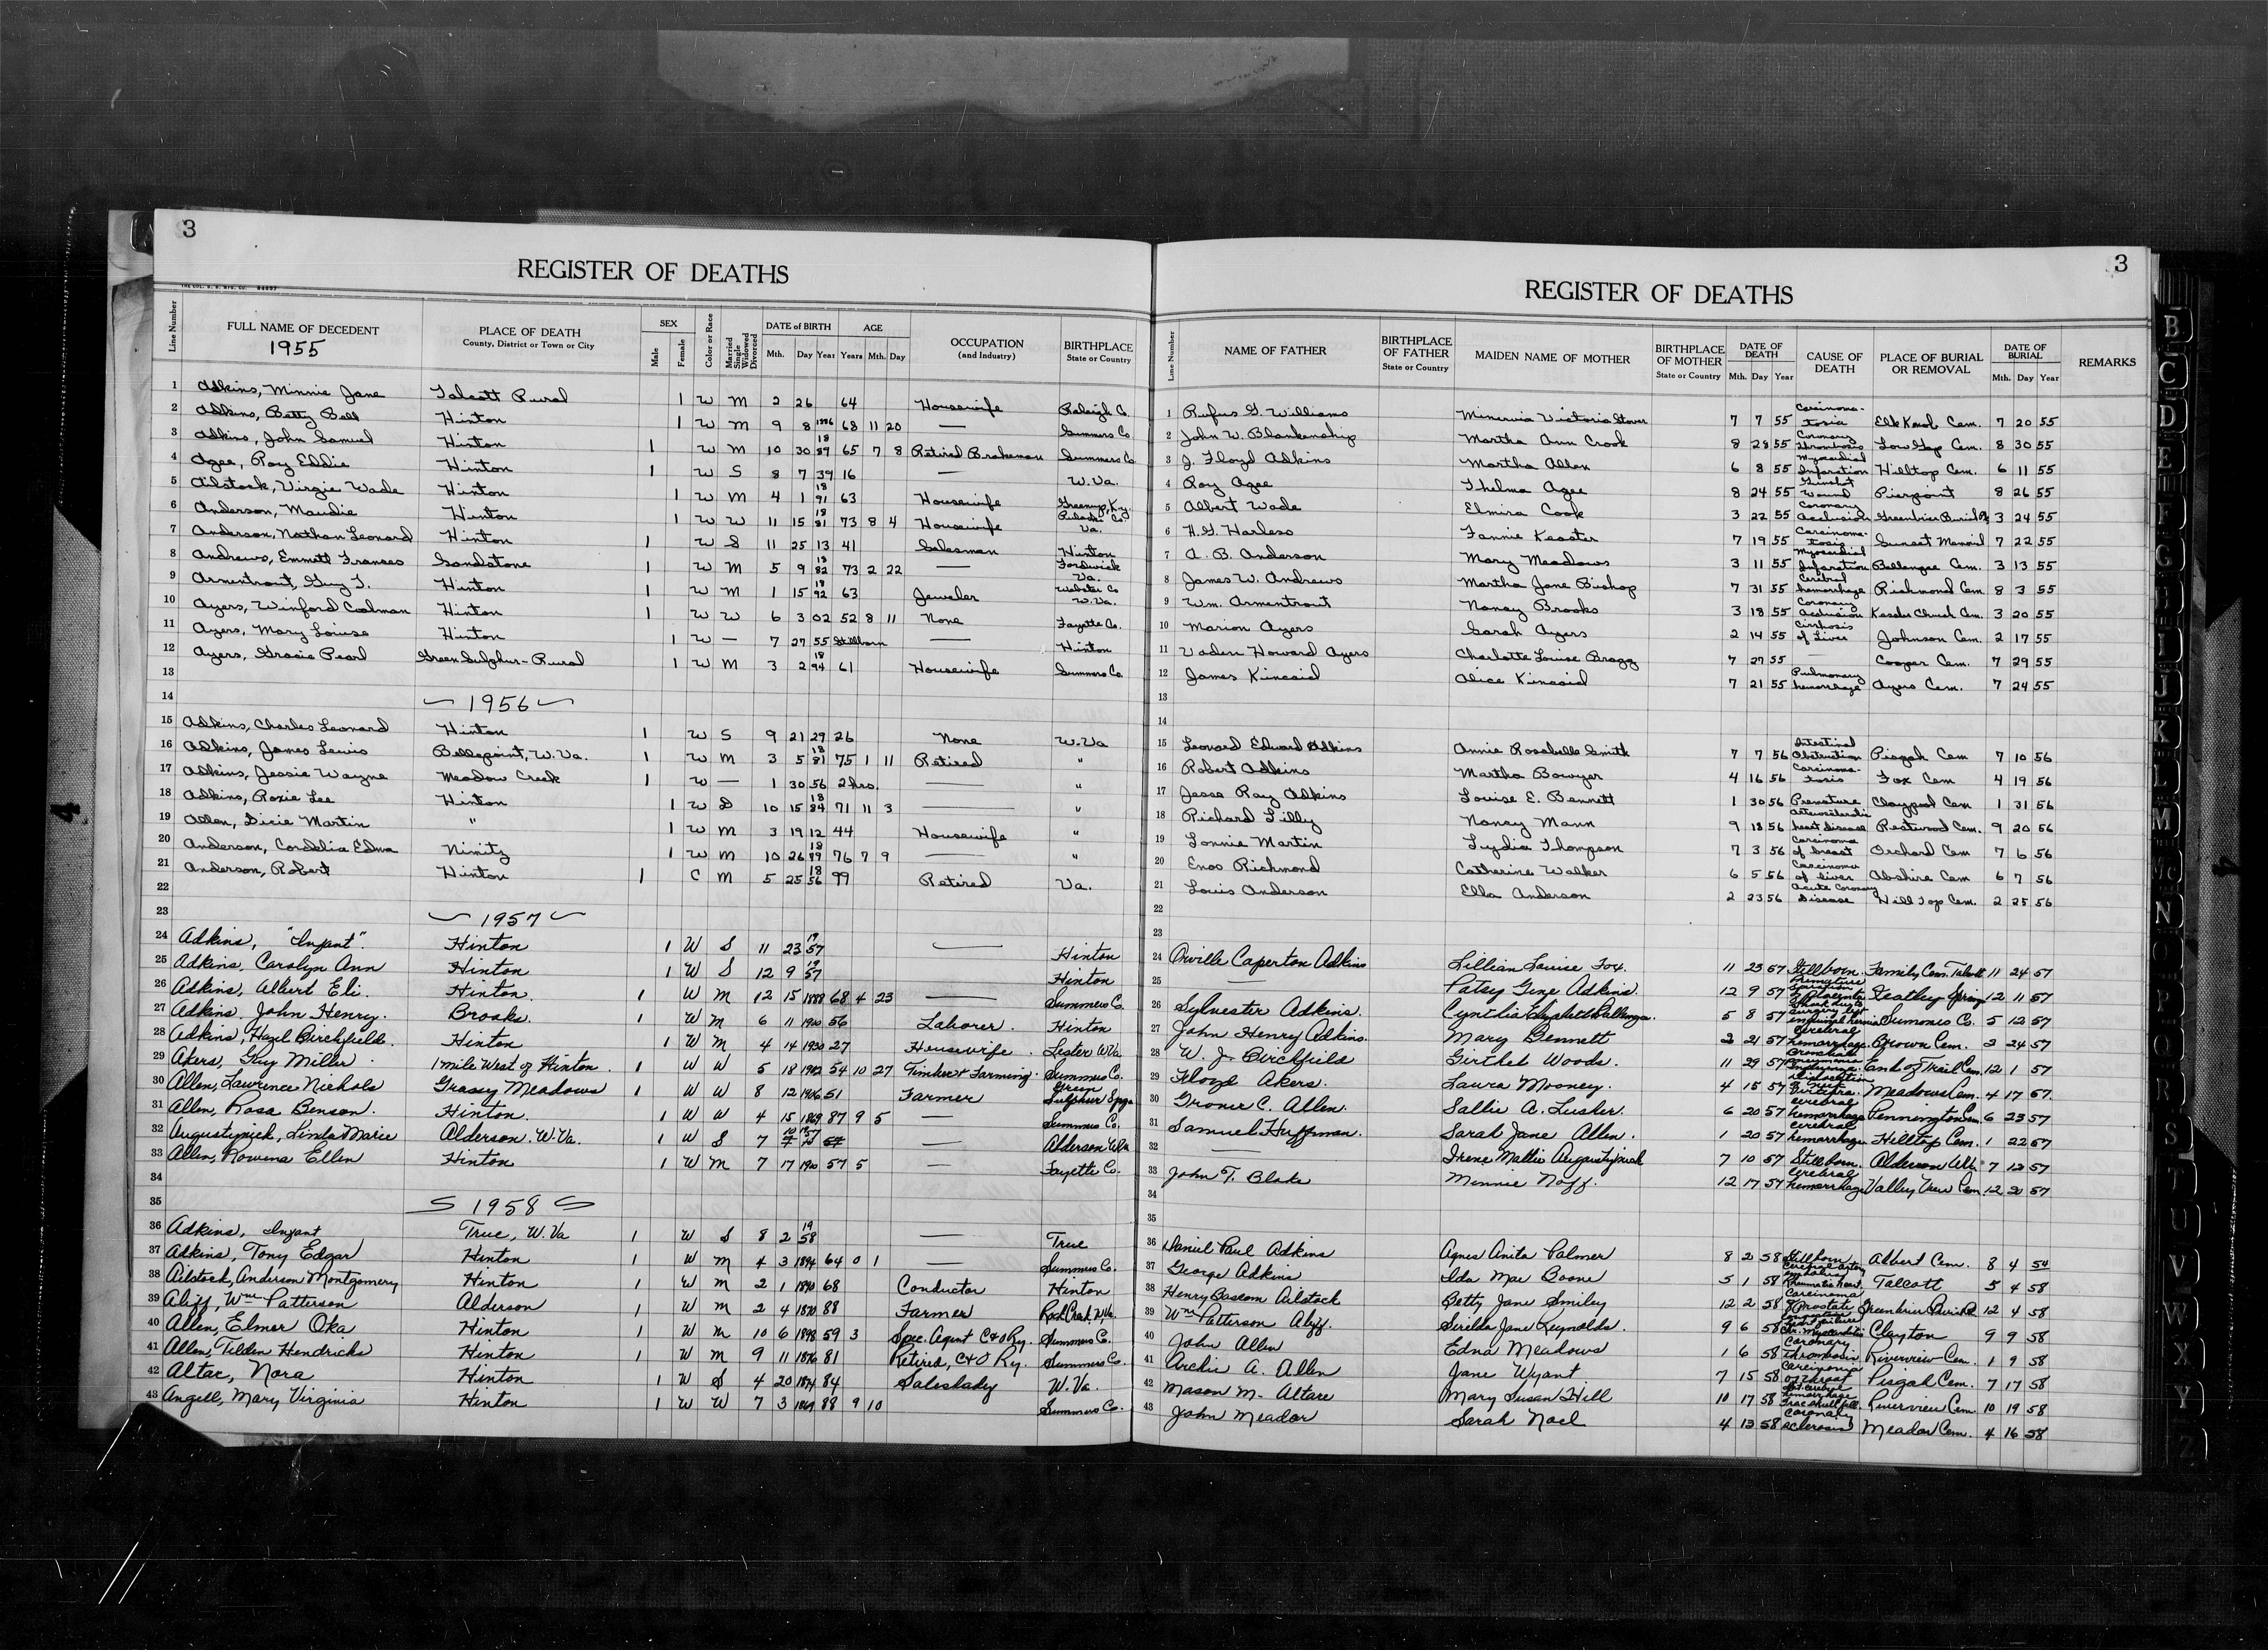 3
REGISTER OF DEATHS
Line Number FULL NAME OF DECEDENT PLACE OF DEATH County, District or Town or City SEX Male Female Color or Race Married Single Widowed Divorced DATE of BIRTH Mth. Day Year AGE Years Mth. Day OCCUPATION (and Industry) BIRTHPLACE State or Country
1955
1 Adkins, Minnie Jane Talcott Rural 1 W M 2 26 64 Housewife Raleigh Co.
2 Adkins, Betty Bell Hinton 1 W M 9 8 1886 68 11 20 — Summers Co
3 Adkins, John Samuel Hinton 1 W M 10 30 1889 65 7 8 Retired Brakeman Summers Co
4 Agee, Roy Eddie Hinton 1 W S 8 7 39 16 — W. Va.
5 Ailstock, Virgie Wade Hinton 1 W M 4 1 1891 63 Housewife Greenup, Ky.
6 Anderson, Maudie Hinton 1 W W 11 15 1881 73 8 4 Housewife Pulaski Co Va.
7 Anderson, Nathan Leonard Hinton 1 W S 11 25 13 41 Salesman Hinton
8 Andrews, Emmett Frances Sandstone 1 W M 5 9 1882 73 2 22 — Va.
9 Armentrout, Guy T. Hinton 1 W M 1 15 1892 63 Jeweler Webster Co W. Va.
10 Ayers, Winford Coalman Hinton 1 W W 6 3 02 52 8 11 None Fayette Co.
11 Ayers, Mary Louise Hinton 1 W — 7 27 55 Stillborn — Hinton
12 Ayers, Gracie Pearl Green Sulphur-Rural 1 W M 3 2 1894 61 Housewife Summers Co.
13
14 1956
15 Adkins, Charles Leonard Hinton 1 W S 9 21 29 26 None W. Va
16 Adkins, James Lewis Bellepoint, W. Va. 1 W M 3 5 1881 75 1 11 Retired "
17 Adkins, Jessie Wayne Meadow Creek 1 W — 1 30 56 2 hrs. — "
18 Adkins, Roxie Lee Hinton 1 W D 10 15 1884 71 11 3 — "
19 Allen, Dicie Martin " 1 W M 3 19 12 44 Housewife "
20 Anderson, Cordelia Edna Nimitz 1 W M 10 26 1879 76 7 9 — "
21 Anderson, Robert Hinton 1 C M 5 25 1856 99 Retired Va.
22
23 1957
24 Adkins, "Infant". Hinton 1 W S 11 23 1957 — Hinton
25 Adkins, Carolyn Ann Hinton 1 W S 12 9 1957 Hinton
26 Adkins, Albert Eli. Hinton. 1 W M 12 15 1888 68 4 23 — Summers Co.
27 Adkins, John Henry. Brooks. 1 W M 6 11 1900 56 Laborer. Hinton
28 Adkins, Hazel Birchfield. Hinton 1 W M 4 14 1930 27 Housewife. Lester W.Va
29 Akers, Guy Miller. 1 mile West of Hinton. 1 W W 5 18 1902 54 10 27 Timber & Farming. Summers Co.
30 Allen, Lawrence Nichols Grassy Meadows 1 W W 8 12 1906 51 Farmer Green Sulphur Spgs
31 Allen, Rosa Benson. Hinton. 1 W W 4 15 1869 87 9 5 — Summers Co.
32 Augustynick, Linda Marie Alderson. W. Va. 1 W S 7 10 1957 — Alderson W.Va
33 Allen, Rowena Ellen Hinton 1 W M 7 17 1900 57 5 — Fayette Co.
34
35 1958
36 Adkins, Infant True, W. Va 1 W S 8 2 1958 — True
37 Adkins, Tony Edgar Hinton 1 W M 4 3 1894 64 0 1 — Summers Co.
38 Ailstock, Anderson Montgomery Hinton 1 W M 2 1 1890 68 Conductor Hinton
39 Aliff, Wm Patterson Alderson 1 W M 2 4 1870 88 Farmer Rock Creek, W.Va.
40 Allen, Elmer Oka Hinton 1 W M 10 6 1898 59 3 Spec. Agent C&O Ry. Summers Co.
41 Allen, Tilden Hendricks Hinton 1 W M 9 11 1876 81 Retired, C&O Ry. Summers Co.
42 Altac, Nora Hinton 1 W S 4 20 1874 84 Saleslady W. Va.
43 Angell, Mary Virginia Hinton 1 W W 7 3 1869 88 9 10 Summers Co.
3
REGISTER OF DEATHS
Line Number NAME OF FATHER BIRTHPLACE OF FATHER State or Country MAIDEN NAME OF MOTHER BIRTHPLACE OF MOTHER State or Country DATE OF DEATH Mth. Day Year CAUSE OF DEATH PLACE OF BURIAL OR REMOVAL DATE OF BURIAL Mth. Day Year REMARKS
1 Rufus G. Williams Minervia Victoria Stover 7 7 55 Carcinomatosia Elk Knob Cem. 7 20 55
2 John W. Blankenship Martha Ann Crook 8 28 55 Coronary thrombosis Low Gap Cem. 8 30 55
3 J. Floyd Adkins Martha Allen 6 8 55 Myocardial Infarction Hilltop Cem. 6 11 55
4 Roy Agee Thelma Agee 8 24 55 Gunshot Wound Pierpoint 8 26 55
5 Albert Wade Elmira Cook 3 22 55 Coronary Occlusion Greenbrier Burial Pk 3 24 55
6 H. G. Harless Fannie Keaster 7 19 55 Carcinomatosis Sunset Memorial 7 22 55
7 A. B. Anderson Mary Meadows 3 11 55 Myocardial Infarction Ballengee Cem. 3 13 55
8 James W. Andrews Martha Jane Bishop 7 31 55 Cerebral hemorrhage Richmond Cem. 8 3 55
9 Wm. Armentrout Nancy Brooks 3 18 55 Coronary occlusion Kesler Church Cem. 3 20 55
10 Marion Ayers Sarah Ayers 2 14 55 Cirrhosis of Liver Johnson Cem. 2 17 55
11 Vaden Howard Ayers Charlotte Louise Bragg 7 27 55 Cooper Cem. 7 29 55
12 James Kincaid Alice Kincaid 7 21 55 Pulmonary hemorrhage Ayers Cem. 7 24 55
13
14
15 Leonard Edward Adkins Annie Rosabelle Smith 7 7 56 Intestinal Obstruction Pisgah Cem 7 10 56
16 Robert Adkins Martha Bowyer 4 16 56 Carcinomatosis Fox Cem 4 19 56
17 Jesse Ray Adkins Louise E. Bennett 1 30 56 Premature Claypool Cem 1 31 56
18 Richard Lilly Nancy Mann 9 18 56 Arteriosclerotic heart disease Restwood Cem. 9 20 56
19 Lonnie Martin Lydia Thompson 7 3 56 Carcinoma of breast Orchard Cem 7 6 56
20 Enos Richmond Catherine Walker 6 5 56 Carcinoma of liver Abshire Cem 6 7 56
21 Louis Anderson Ella Anderson 2 23 56 Acute Coronary Disease Hill Top Cem. 2 25 56
22
23
24 Orville Caperton Adkins Lillian Louise Fox. 11 23 57 Stillborn. Family Cem. Talcott 11 24 57
25 — Patsy Gine Adkins. 12 9 57 Premature Separation of Placenta 12 11 57
26 Sylvester Adkins. Cynthia Elizabeth Ballenger. 5 8 57 Shock due to surgery left inguinal hernia Summers Co. 5 12 57
27 John Henry Adkins. Mary Bennett 2 21 57 Cerebral hemorrhage. Brown Cem. 2 24 57
28 W. J. Birchfield Girthel Woods. 11 29 57 Bronchial pneumonia End of Trail Cem. 12 1 57
29 Floyd Akers. Laura Mooney. 4 15 57 Dislocation of neck vertebra. Meadows Cem. 4 17 57
30 Groner C. Allen. Sallie A. Lusher. 6 20 57 Cerebral hemorrhage Pennington Cem. 6 23 57
31 Samuel Huffman. Sarah Jane Allen. 1 20 57 Cerebral hemorrhage Hilltop Cem. 1 22 57
32 — Irene Mattie Augustynick 7 10 57 Stillborn. Alderson W.Va 7 12 57
33 John T. Blake Minnie Naff. 12 17 57 Cerebral hemorrhage Valley View Cem 12 20 57
34
35
36 Daniel Paul Adkins Agnes Anita Palmer 8 2 58 Stillborn Albert Cem. 8 4 54
37 George Adkins Ida Mae Boone 5 1 58 Cerebral artery embolism Rheumatic heart. Talcott 5 4 58
38 Henry Bascom Ailstock Betty Jane Smiley 12 2 58 Carcinoma of Prostate Greenbrier Burial Pk 12 4 58
39 Wm Patterson Aliff. Serilda Jane Reynolds. 9 6 58 heart failure Chr. Myocarditis Clayton 9 9 58
40 John Allen Edna Meadows 1 6 58 Coronary thrombosis Riverview Cem. 1 9 58
41 Archie A. Allen Jane Wyant 7 15 58 Carcinoma of throat Pisgah Cem. 7 17 58
42 Mason M. Altare Mary Susan Hill 10 17 58 hemorrhage Frac skull fall. Riverview Cem. 10 19 58
43 John Meador Sarah Noel 4 13 58 Coronary sclerosis Meador Cem. 4 16 58
B
C
D
E
F
G
I
J
K
L
M
Mc
N
O
P
Q
R
S
T
U
V
W
X
Y
Z
4
4